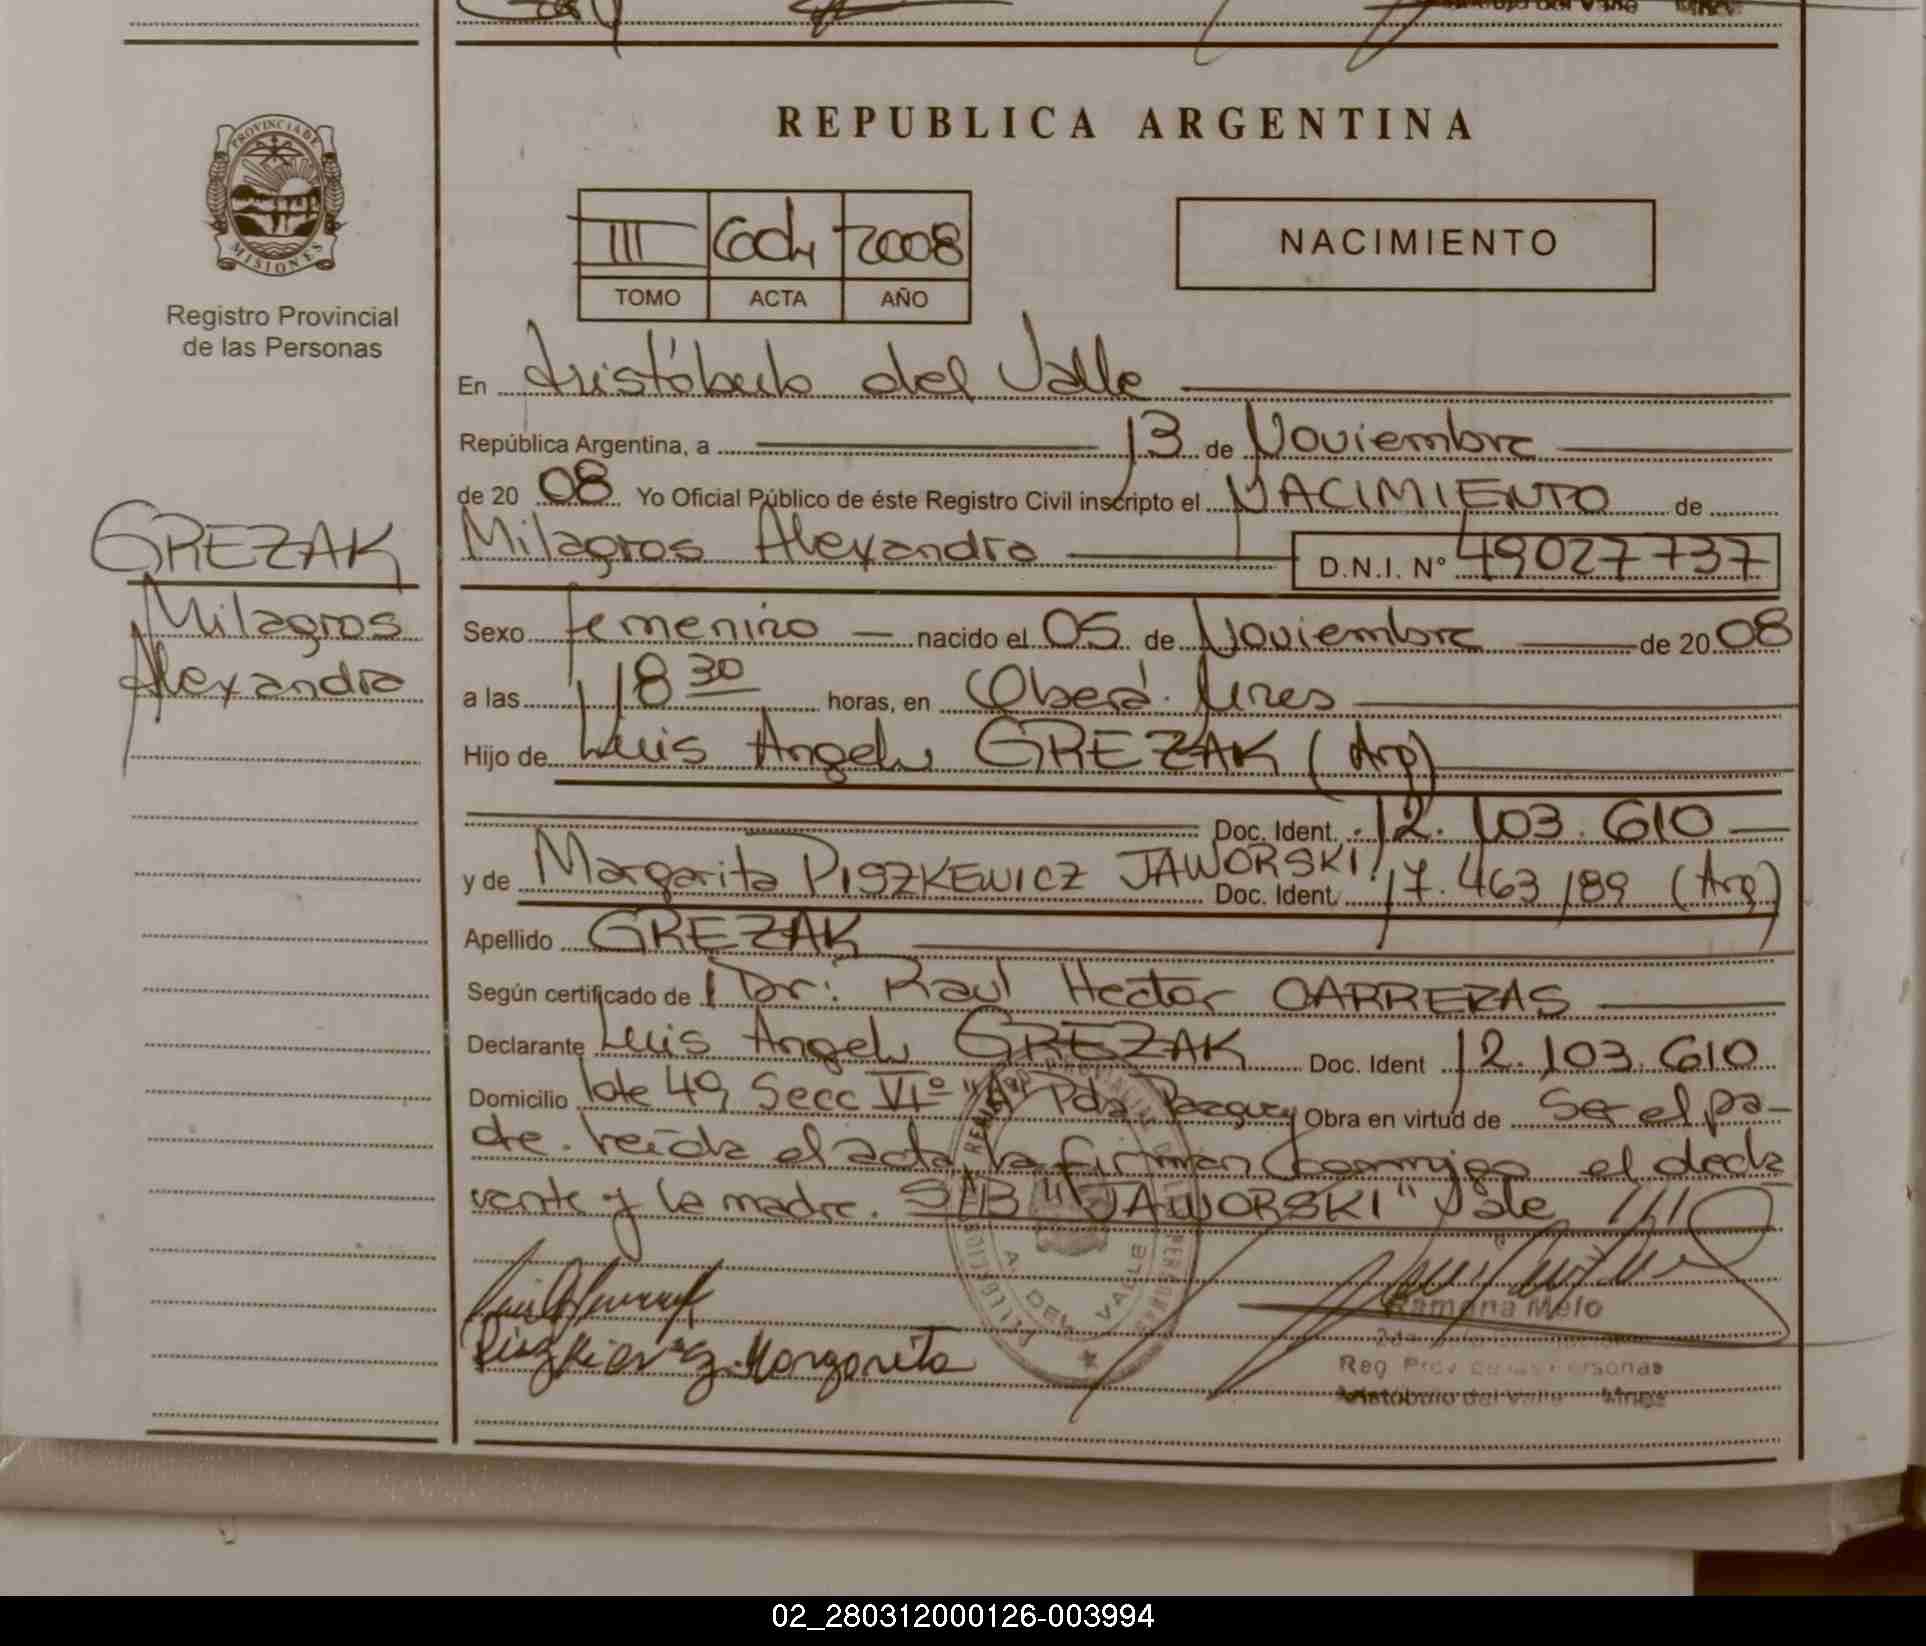 REPUBLICA ARGENTINA
PROVINCIA DE
MISIONES
Registro Provincial
de las Personas
III 2008
TOMO ACTA AÑO
NACIMIENTO
En Aristóbulo del Valle
República Argentina, a 13 de Noviembre
de 20 08 Yo Oficial Público de éste Registro Civil inscripto el NACIMIENTO de
GREZAK
Milagros Alexandra D.N.I. Nº 49027737
Milagros
Alexandra
Sexo femenino nacido el 05 de Noviembre de 20 08
a las 18 30 horas, en Oberá. Mnes
Hijo de Luis Angel GREZAK (Arg)
Doc. Ident. 12.103.610
y de Margarita PISZKEWICZ JAWORSKI Doc. Ident. 17.463189 (Arg)
Apellido GREZAK
Según certificado de Dr: Raul Hector CARRERAS
Declarante Luis Angel GREZAK Doc. Ident 12.103.610
Domicilio lote 49 Secc VIº "A" Pdje Obra en virtud de Ser el pa-
dre. Leída el acta, la firman conmigo el decla
rante y la madre. S/B "JAWORSKI" Vale
A. DEL VALLE
Margarita
Ramona Melo
Reg Prov de las Personas
Aristóbulo del Valle Mnes
02_280312000126-003994